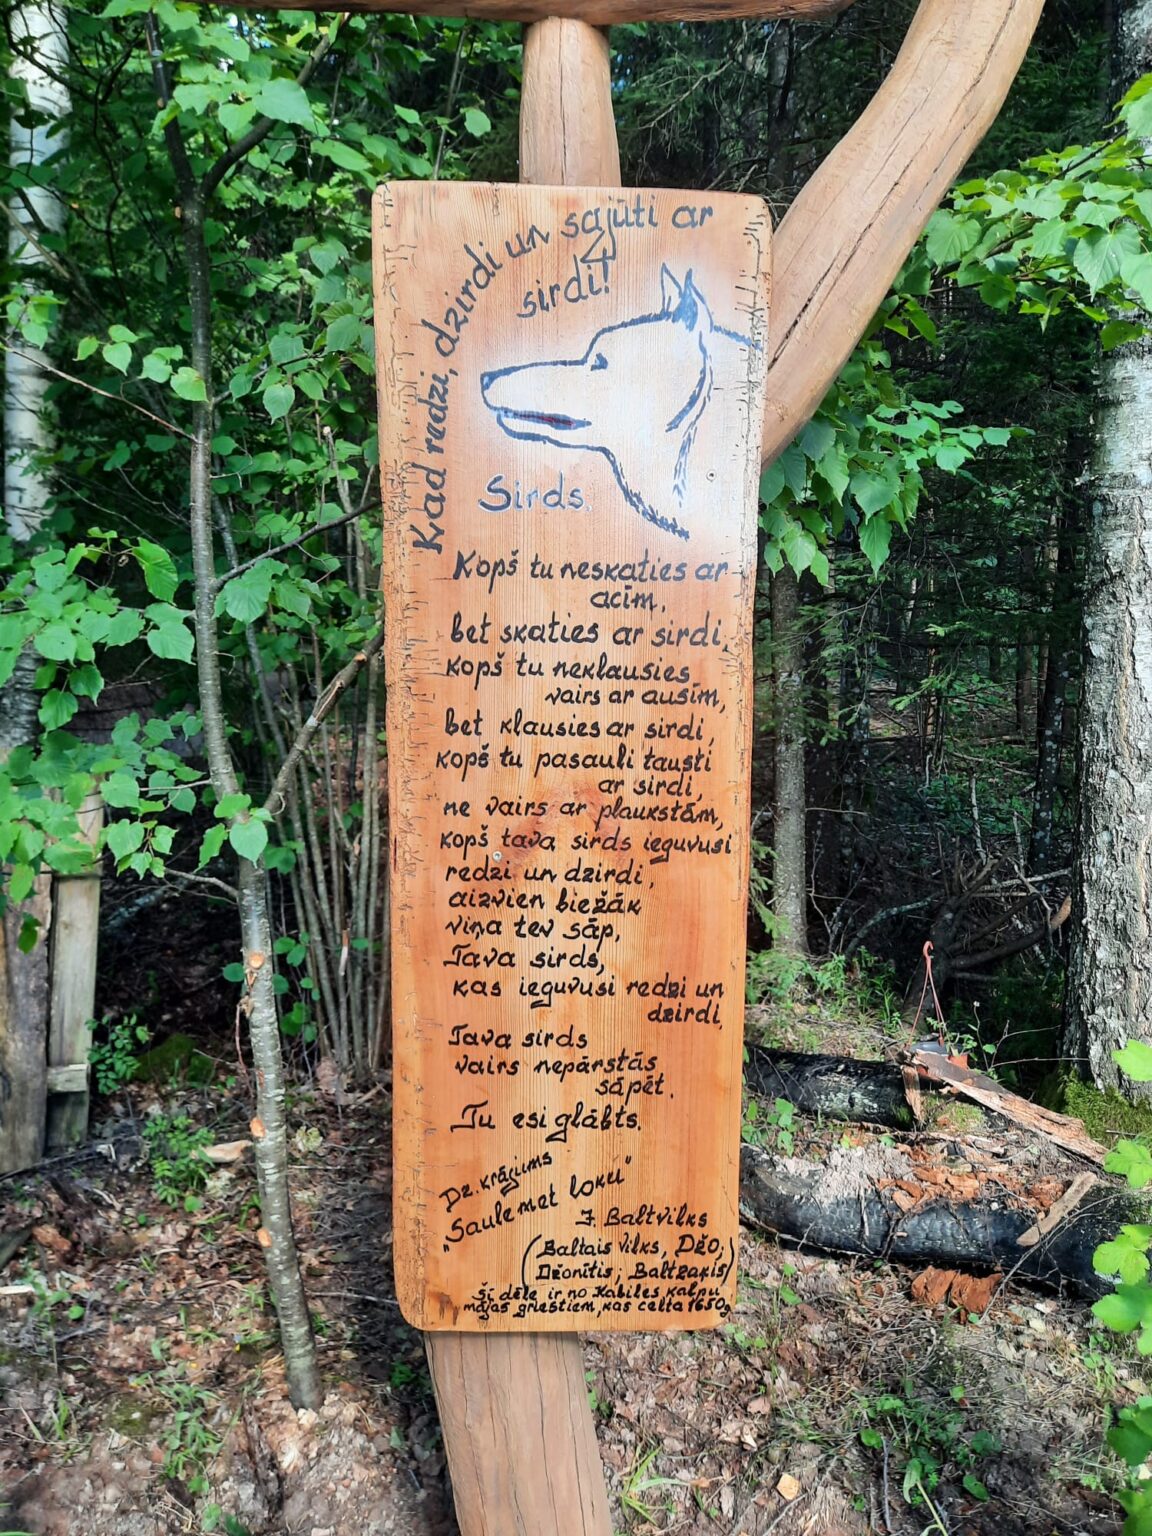 Kad redzi, dzirdi un sajūti ar
sirdi!
Sirds.
Kopš tu neskaties ar
acīm,
bet skaties ar sirdi,
kopš tu neklausies
vairs ar ausīm,
bet klausies ar sirdi,
kopš tu pasauli tausti
ar sirdi,
ne vairs ar plaukstām,
kopš tava sirds ieguvusi
redzi un dzirdi,
aizvien biežāk
viņa tev sāp,
Tava sirds,
kas ieguvusi redzi un
dzirdi,
Tava sirds
vairs nepārstās
sāpēt.
Tu esi glābts.
Dz. krājums
"Saule met loku"
J. Baltvilks
(Baltais Vilks, Džo,
Džonītis; Baltzaķis)
Šī dēle ir no Kabiles kalpu
mājas griestiem, kas celta 1650g